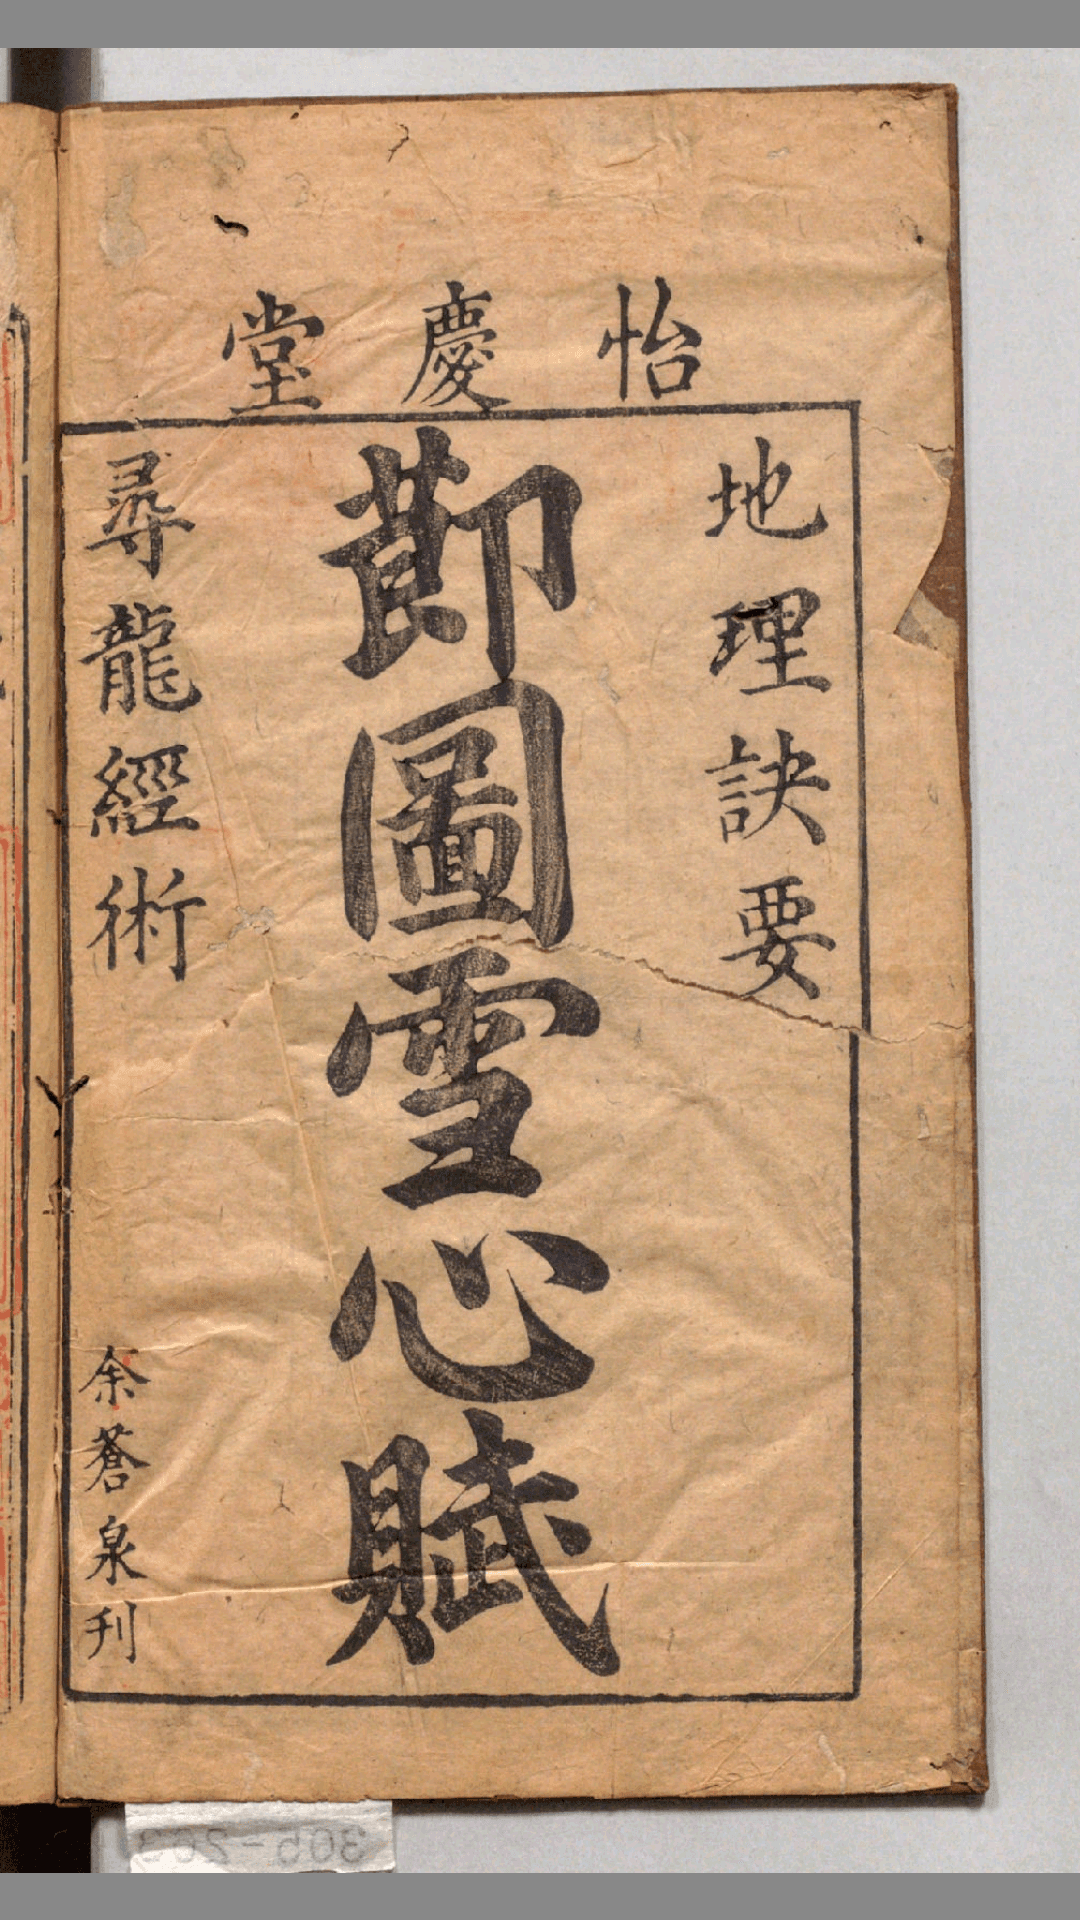 怡慶堂
地理訣要
節圖雪心賦
尋龍經術
余蒼泉刊